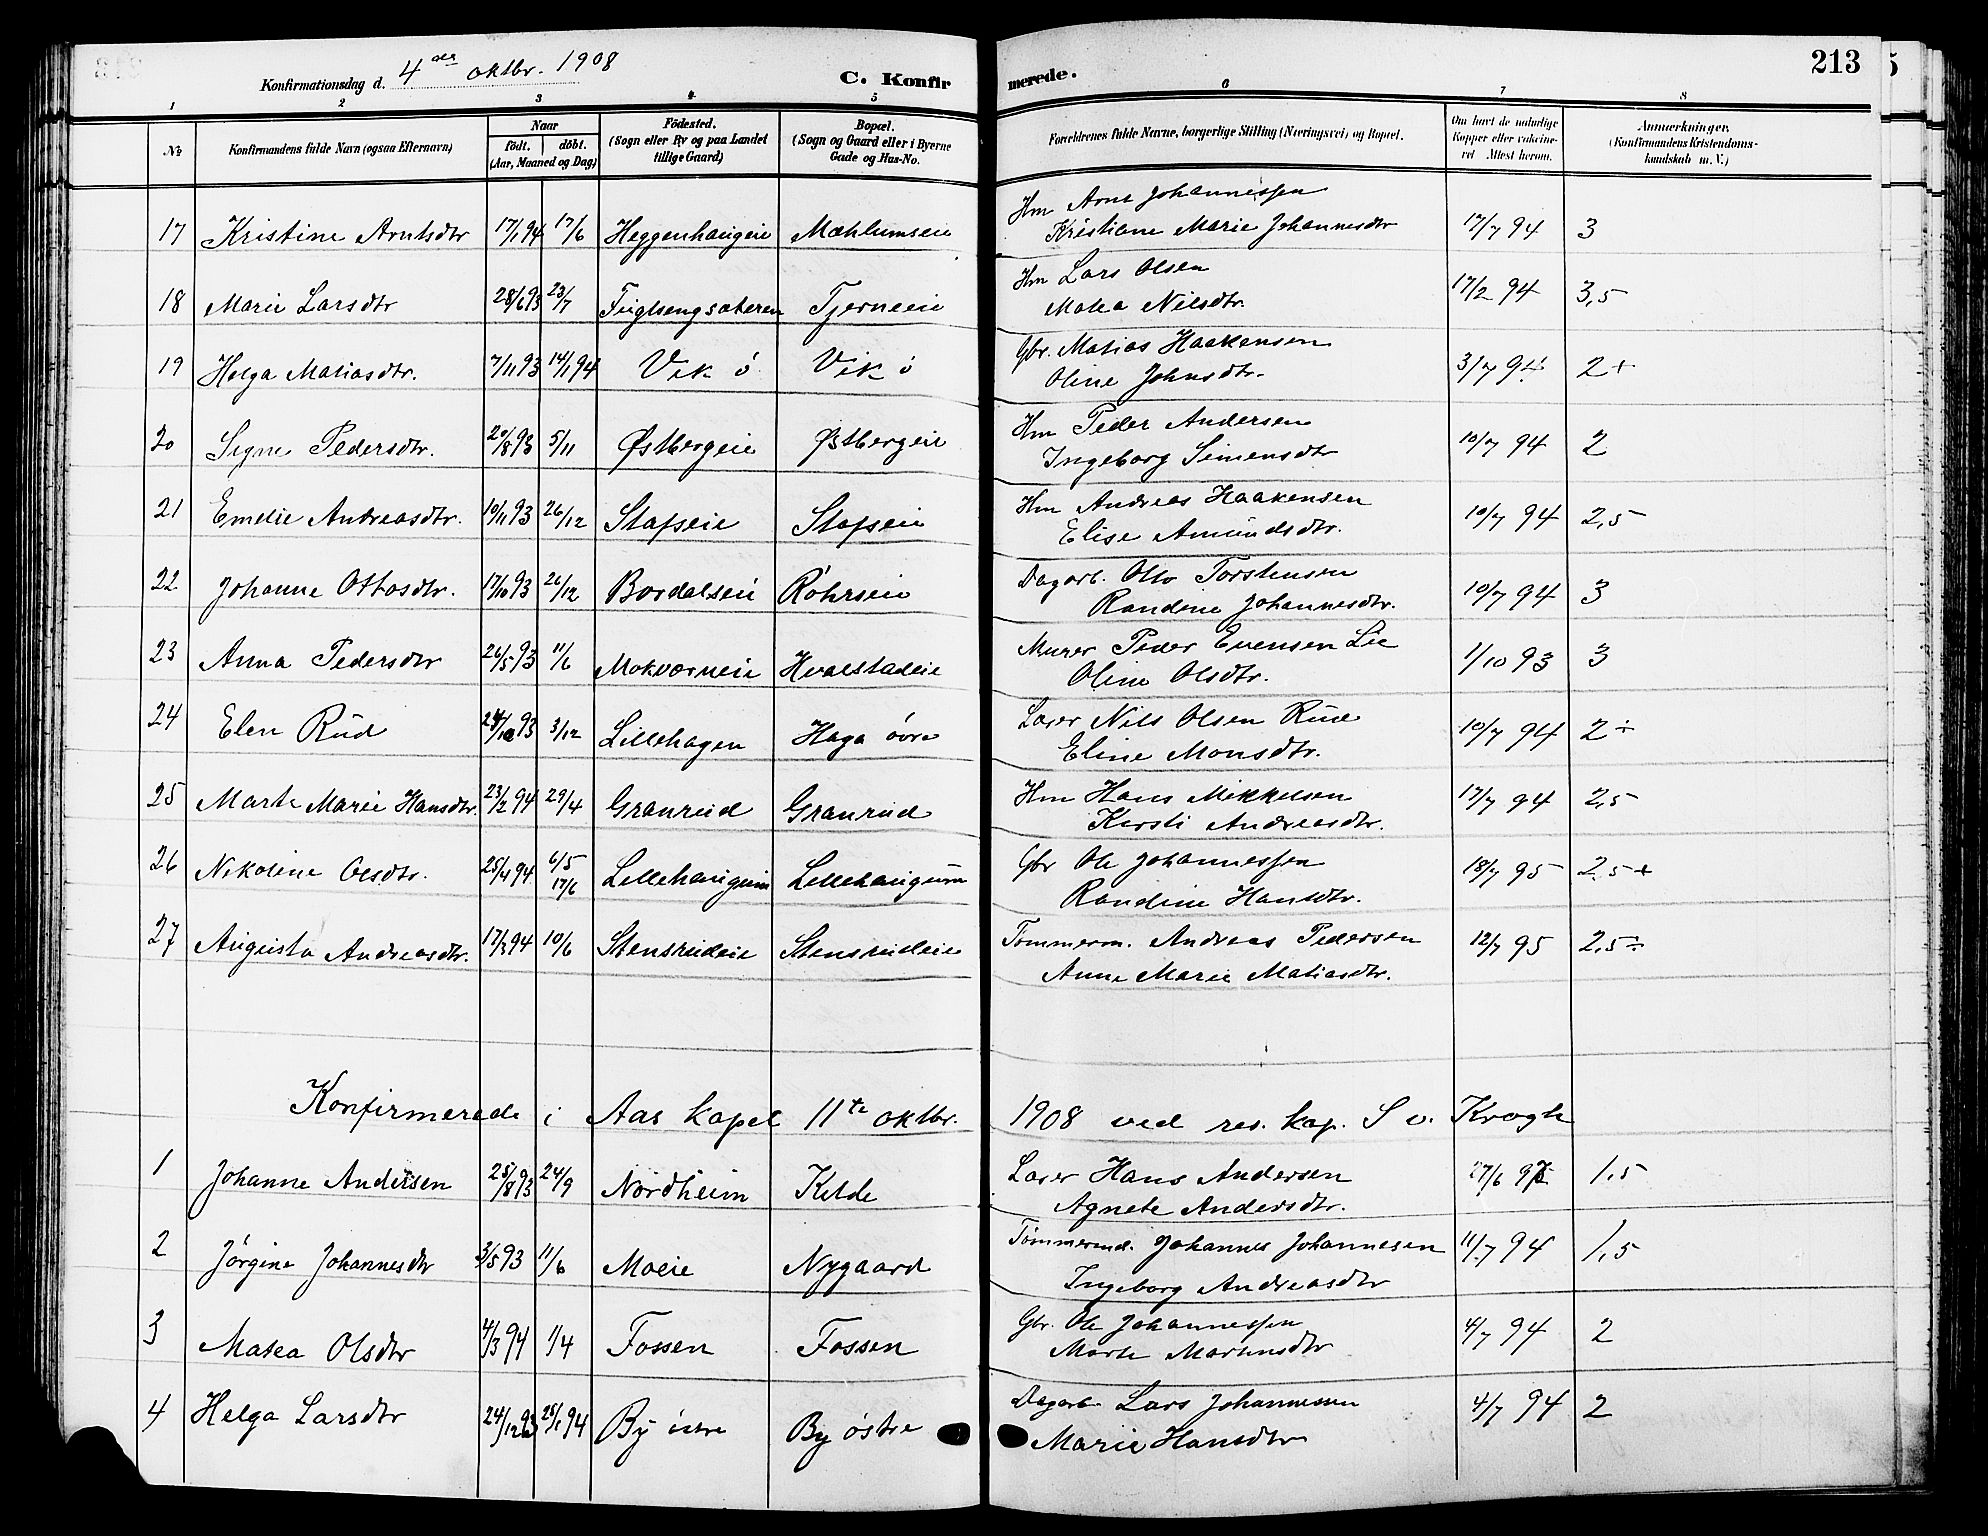 Konfirmationsdag d. 4de oktbr. 1908
C. Konfirmerede.
213
1 2 3 4 5 6 7 8
№ Konfirmandens fulde Navn (ogsaa Efternavn) Naar født. døbt. (Aar, Maaned og Dag) Fødested. (Sogn eller By og paa Landet tillige Gaard) Bopæl. (Sogn og Gaard eller i Byerne Gade og Hus-No. Forældrenes fulde Navne, borgerlige Stilling (Næringsvei) og Bopæl. Om havt de naturlige Kopper eller vakcineret Attest herom. Anmærkninger. (Konfirmandens Kristendomskundskab m. V.)
17 Kristine Arntsdtr 17/1 94 17/6 Heggenhaugeie Mæhlumseie Hm Arne Johannessen
Kristiane Marie Johannesdtr 17/7 94 3
18 Marie Larsdtr 28/6 93 23/7 Fuglsengsæteren Tjerneeie Hm Lars Olsen
Matea Nilsdtr. 17/2 94 3,5
19 Helga Matiasdtr. 7/11 93 14/1 94 Vik ö Vik ö Gbr. Matias Haakensen
Oline Johnsdtr. 3/7 94 2+
20 Signe Pedersdtr. 20/8 93 5/11 Østbergeie Østbergeie Hm Peder Andersen
Ingeborg Simensdtr 10/7 94 2
21 Emelie Andreasdtr. 10/11 93 26/12 Stafseie Stafseie Hm Andreas Haakensen
Elise Amundsdtr. 10/7 94 2,5
22 Johanne Ottosdtr. 17/10 93 26/12 Bordalseie Röhrseie Dagarb. Otto Torstensen
Randine Johannesdtr. 10/7 94 3
23 Anna Pedersdtr 26/5 93 11/6 Mokværneie Hvalstadeie Murer Peder Evensen Lie
Oline Olsdtr. 1/10 93 3
24 Elen Rud 93 3/12 Lillehagen Haga övre Laser Nils Olsen Rud
Eline Monsdtr. 10/7 94 2÷
25 Marte Marie Hansdtr. 23/2 94 29/4 Granrud Granrud Hm Hans Mikkelsen
Kersti Andreasdtr. 17/7 94 2,5
26 Nikoline Olsdtr. 25/4 94 6/5 17/6 Lillehaugum Lillehaugum Gbr Ole Johannessen
Randine Hansdtr. 18/7 95 2,5+
27 Augusta Andreasdtr. 17/3 94 10/6 Stensrudeie Stensrudeie Tømmerm. Andreas Pedersen
Anne Marie Matiasdtr. 12/7 95 2,5÷
Konfirmerede i Aas kapel 11te oktbr. 1908 ved res. kap. S v. Krogh
1 Johanne Andersen 25/8 93 24/9 Nordheim Kilde Laser Hans Andersen
Agnete Andersdtr. 27/6 1,5
2 Jörgine Johannesdtr 3/5 93 11/6 Moeie Nygaard Tømmermd. Johannes Johannesen
Ingeborg Andreasdtr 11/7 94 1,5
3 Matea Olsdtr 4/3 94 1/4 Fossen Fossen Gbr. Ole Johannessen
Marte Martinsdtr 4/7 94 2
4 Helga Larsdtr 24/12 93 28/1 94 By östre By østre Dagarb. Lars Johannessen
Marie Hansdtr 4/7 94 2